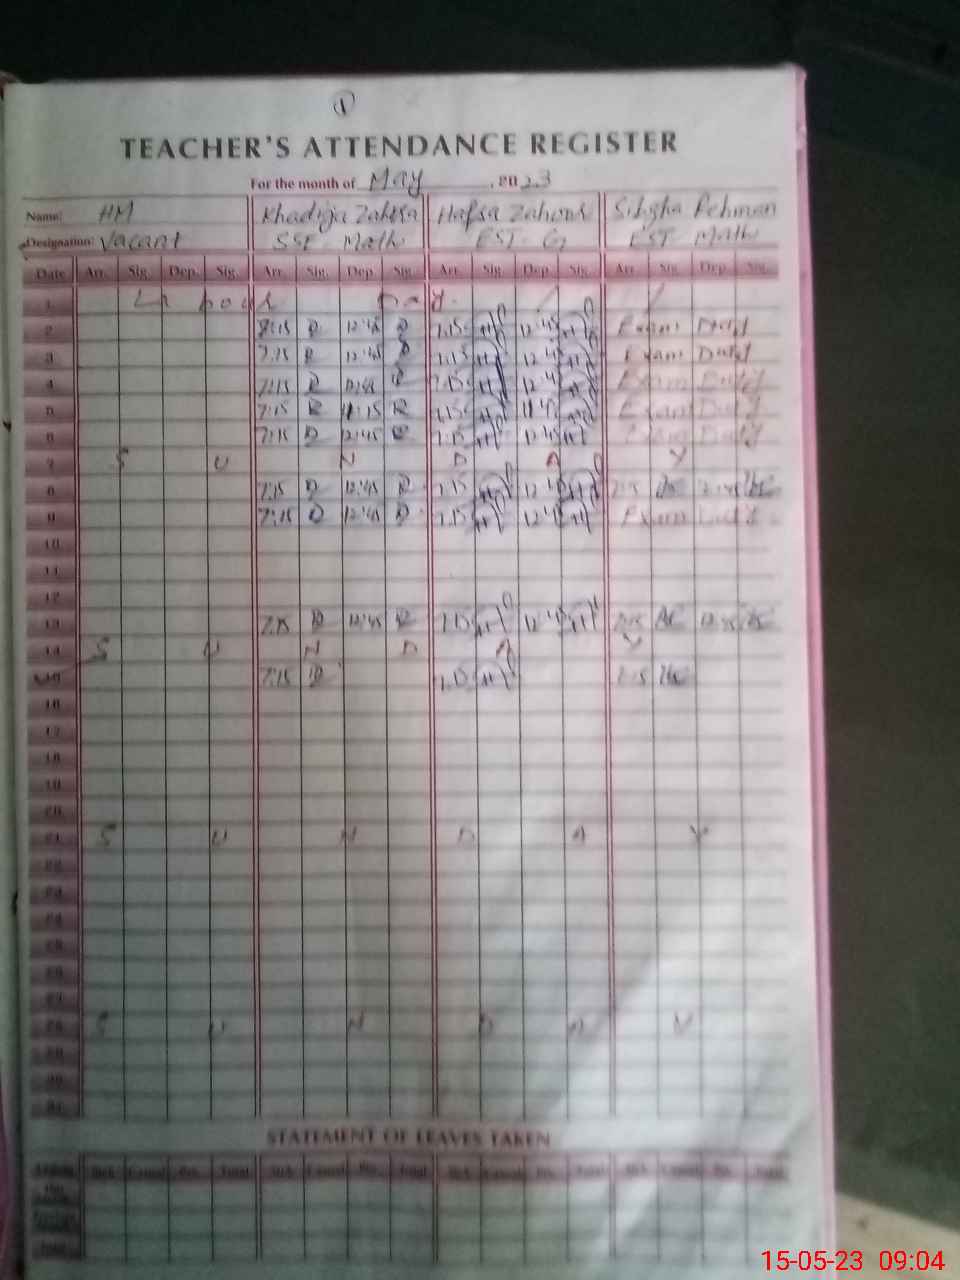 1
TEACHER'S ATTENDANCE REGISTER
For the month of May, 2023
Name: HM Khadija Zahra Hafsa Zahoor Sibgha Rehman
Designation: Vacant SSE Math EST-G EST Math
Date Arr. Sig. Dep. Sig. Arr. Sig. Dep. Sig. Arr. Sig. Dep. Sig. Arr. Sig. Dep. Sig.
1 Labour Day
2 7:15 12:45 7:15 12:45 Exam Duty
3 7:15 12:45 7:15 12:45 Exam Duty
4 7:15 12:45 7:15 12:45 Exam Duty
5 7:15 11:15 7:15 Exam Duty
6 7:15 12:45 7:15 12:45 Exam Duty
7 S U N D A Y
8 7:15 12:45 7:15 12:45 7:15 12:45
9 7:15 12:45 7:15 12:45 Exam Duty
10
11
12
13 7:15 12:45 7:15 12:45 7:15 12:45
14 S U N D A Y
15 7:15 7:15 7:15
16
17
18
19
20
21 S U N D A Y
22
23
24
25
26
27
28 S U N D A Y
29
30
31
STATEMENT OF LEAVES TAKEN
Sick Casual Total Sick Casual Total Sick Casual Total Sick Casual Total
15-05-23 09:04